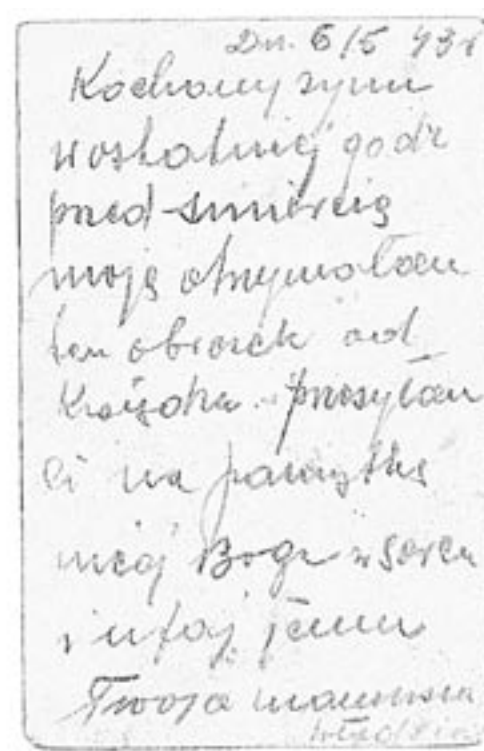 Dn. 6/5 43r
Kochany synu
w ostatniej godz
pred śmiercią
moją otrzymałam
ten obrozek od
Księdza. przesyłam
ci na pamiątkę
miej Boga w sercu
i ufaj jemu
Twoja mamusia